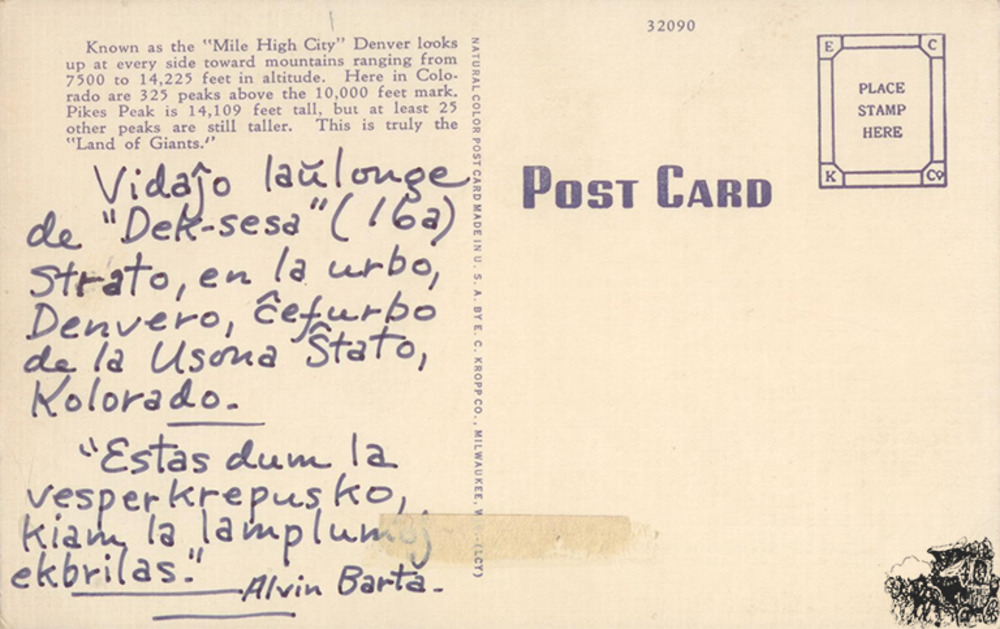 Known as the "Mile High City" Denver looks
up at every side toward mountains ranging from
7500 to 14,225 feet in altitude. Here in Colo-
rado are 325 peaks above the 10,000 feet mark.
Pikes Peak is 14,109 feet tall, but at least 25
other peaks are still taller. This is truly the
"Land of Giants."
Vidaĵo laŭlonge
de "Dek-sesa" (16a)
Strato, en la urbo,
Denvero, ĉefurbo
de la Usona Ŝtato,
Kolorado.
"Estas dum la
vesperkrepusko,
kiam la lamplumoj
ekbrilas."
Alvin Barta.
NATURAL COLOR POST CARD MADE IN U. S. A. BY E. C. KROPP CO., MILWAUKEE, (LCY)
32090
POST CARD
E C
PLACE
STAMP
HERE
K Co